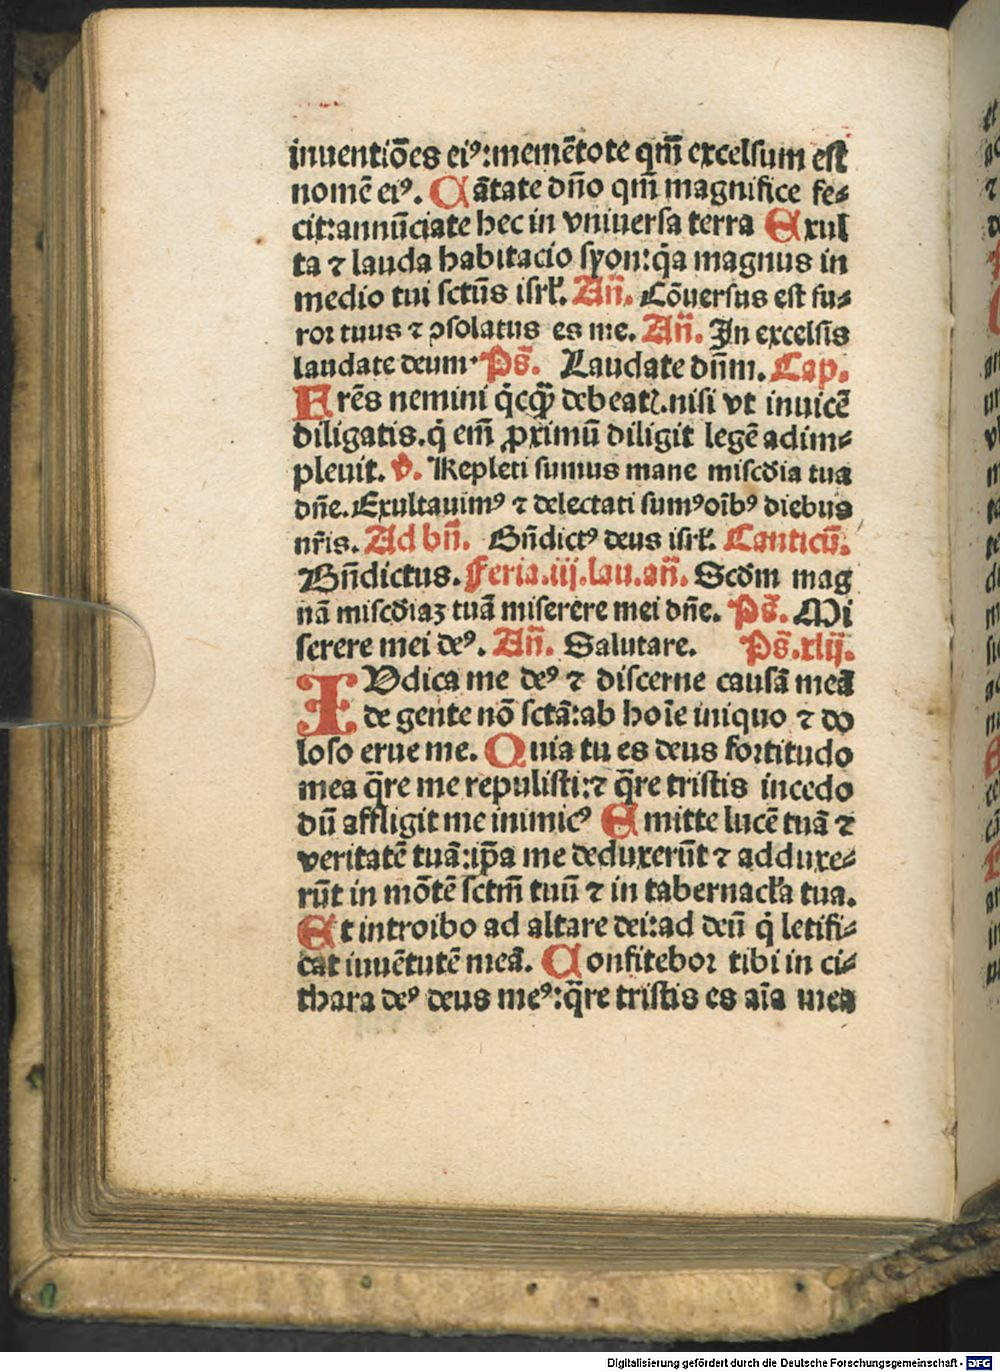 inuentiões eiꝰ:memētote qm̄ excelsum est
nomē eiꝰ. Cātate dño qm̄ magnifice fe⸗
cit:annūciate hec in vniuersa terra Exul
ta ⁊ lauda habitacio syon:q̇a magnus in
medio tui sctūs isrł. Añ. Cōuersus est fu⸗
ror tuus ⁊ ꝯsolatus es me. Añ. In excelsis
laudate deum. Ps̄. Laudate dñm. Cap.
Fres nemini q̇cꝙ̄ debeatꝭ.nisi vt inuicē
diligatis.q̇ em̄ ꝓximū diligit legē adim⸗
pleuit. v̇. Repleti sumus mane miscdia tua
dñe.Exultauimꝰ ⁊ delectati sumꝰoībꝰ diebus
nr̄is. Ad bñ. Bñdictꝰ deus isrł. Canticū.
Bñdictus. Feria.iij.lau.añ. Scdm mag
nā miscdiaꝫ tuā miserere mei dñe. Ps̄. Mi
serere mei deꝰ. Añ. Salutare. Ps̄.xlij.
IVdica me deꝰ ⁊ discerne causā meā
de gente nō sctā:ab hoīe iniquo ⁊ do
loso erue me. Quia tu es deus fortitudo
mea q̄re me repulisti:⁊ q̄re tristis incedo
dū affligit me inimicꝰ Emitte lucē tuā ⁊
veritatē tuā:ip̄a me deduxerūt ⁊ adduxe⸗
rūt in mōtē sctm̄ tuū ⁊ in tabernacła tua.
Et introibo ad altare dei:ad deū q̇ letifi⸗
cat iuuētutē meā. Confitebor tibi in ci⸗
thara deꝰ deus meꝰ:q̄re tristis es aīa mea
Digitalisierung gefördert durch die Deutsche Forschungsgemeinschaft - DFG